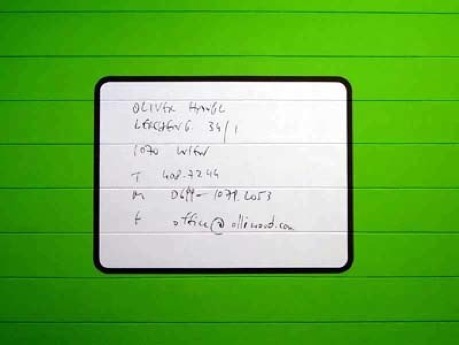 OLIVER HANGL
LERCHENG. 34/1
1070 WIEN
T 408.7244
M 0699-1079.2053
E office@olliwood.com